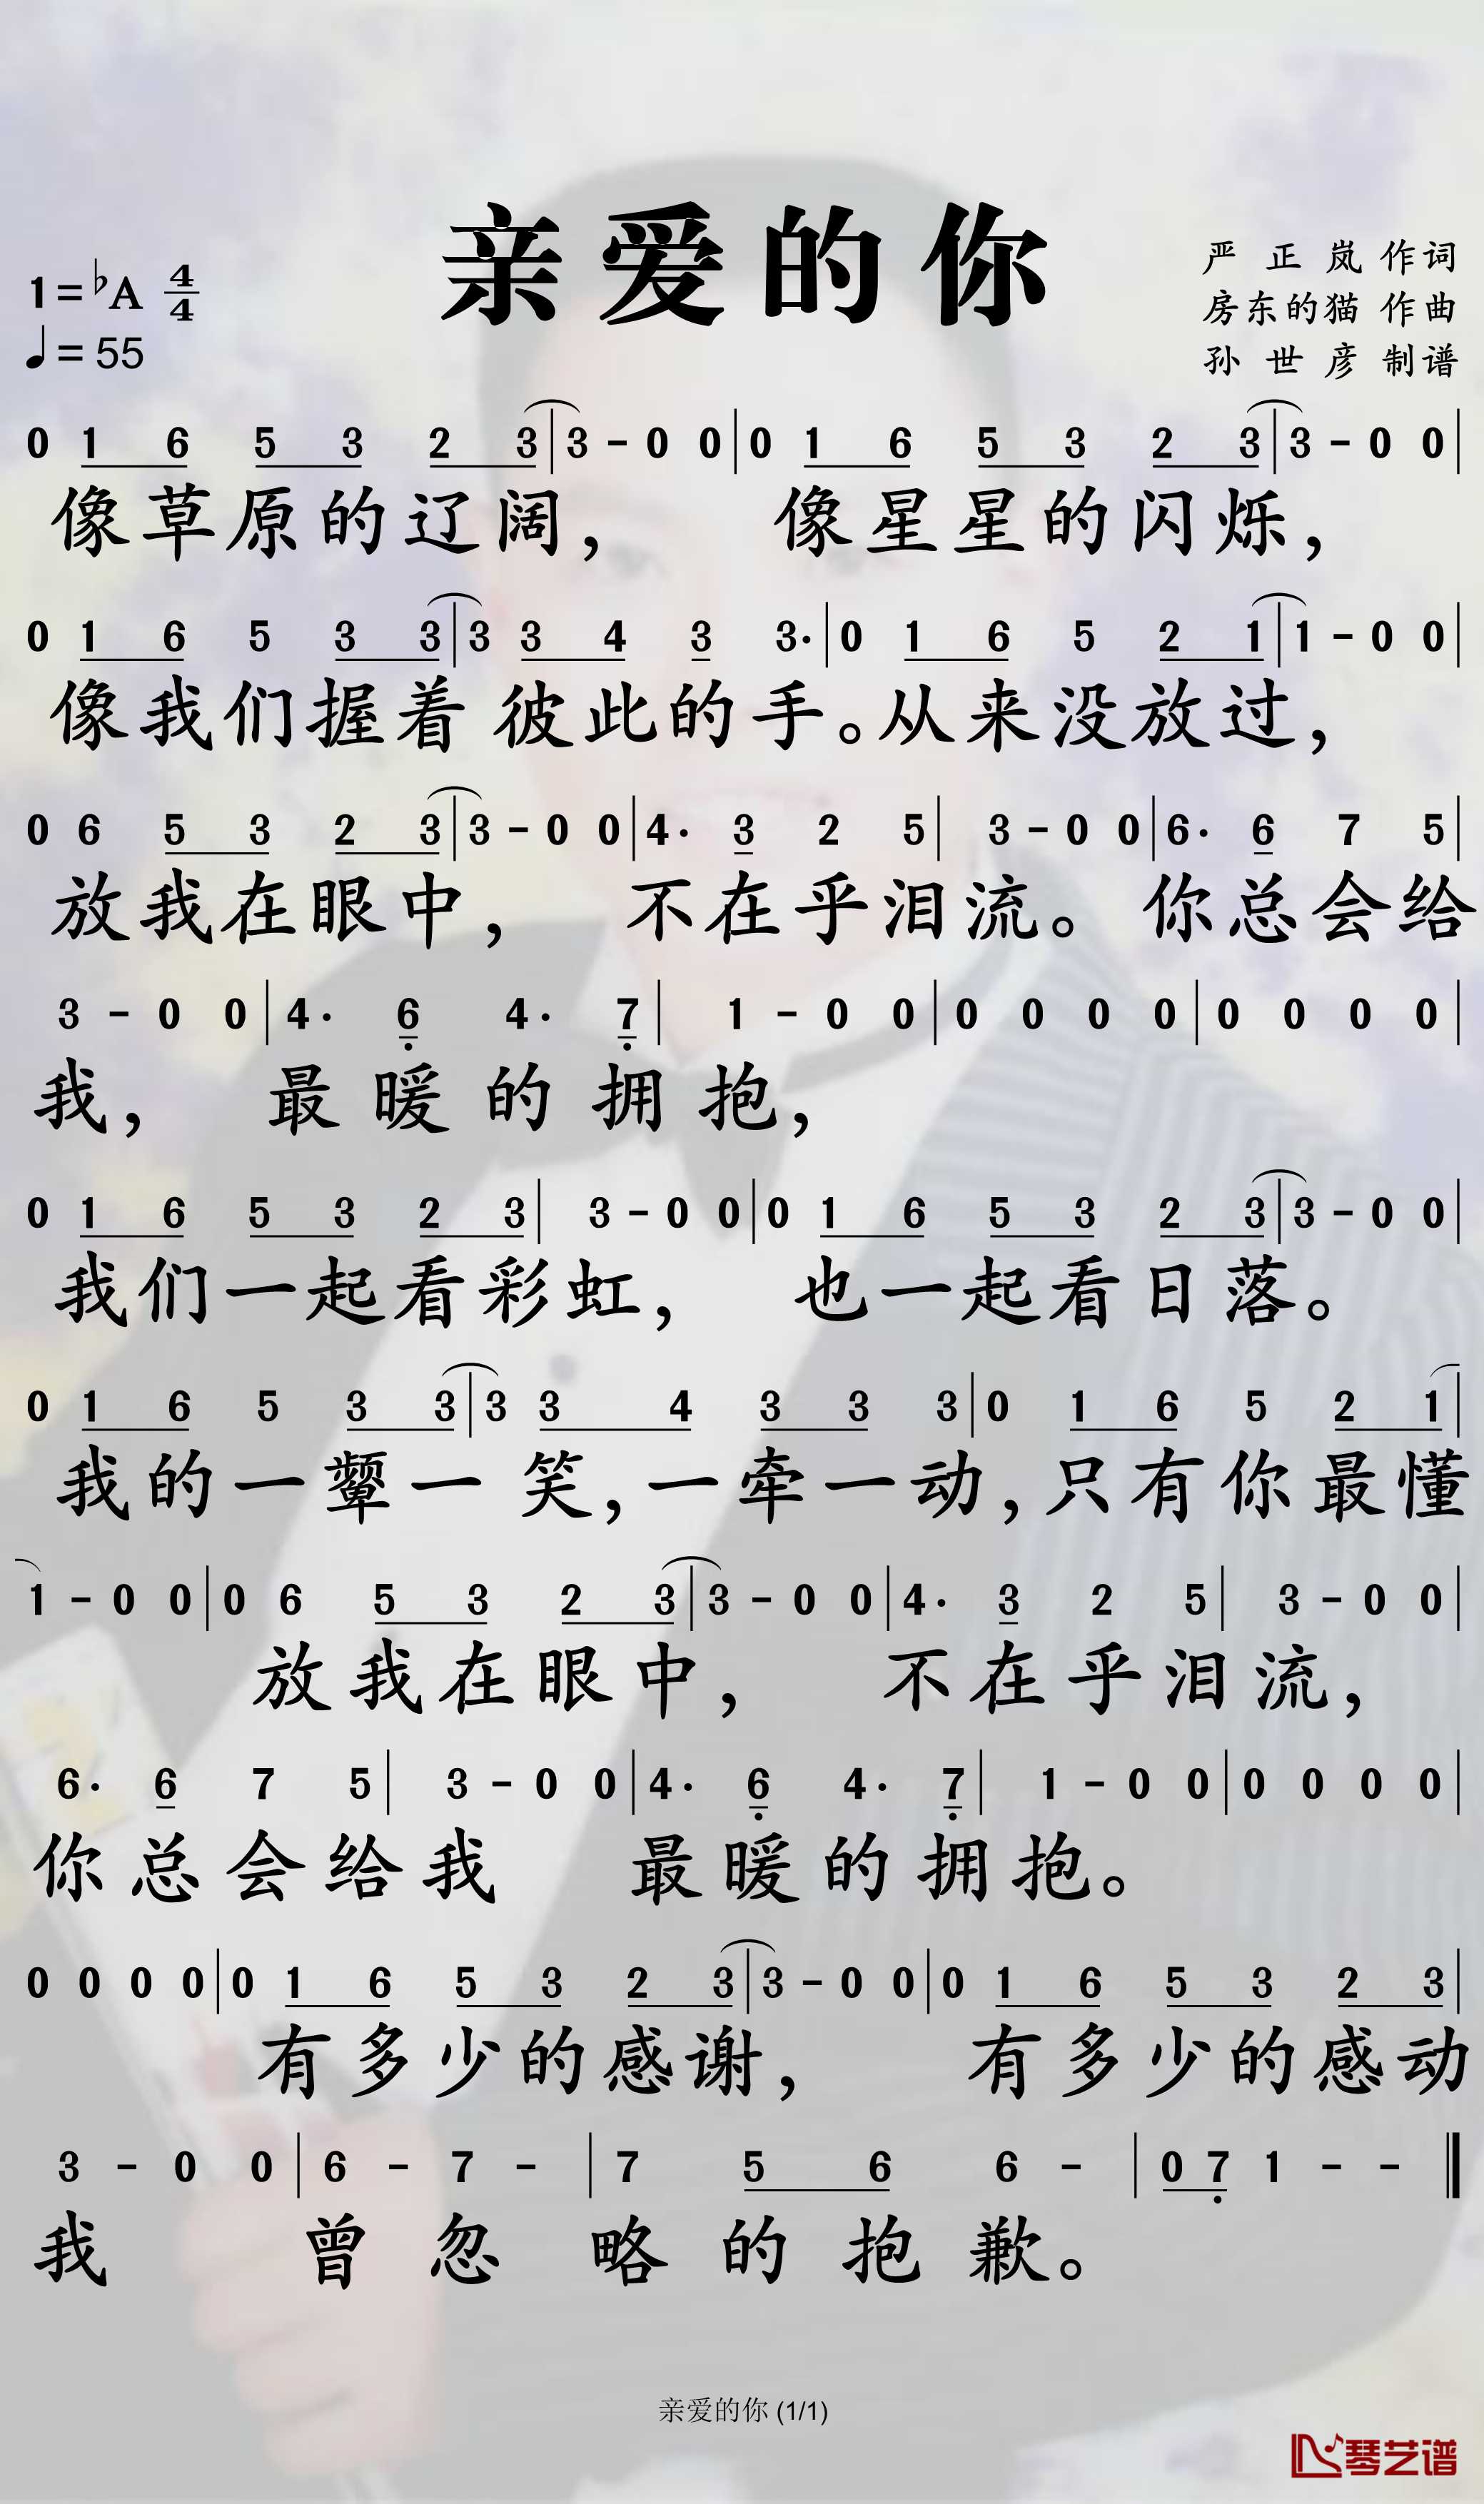 亲爱的你
1=♭A 4/4
♩=55
严正岚 作词
房东的猫 作曲
孙世彦 制谱
0 1 6 5 3 2 3 | 3 - 0 0 | 0 1 6 5 3 2 3 | 3 - 0 0 |
像草原的辽阔， 像星星的闪烁，
0 1 6 5 3 3 | 3 3 4 3 3· | 0 1 6 5 2 1 | 1 - 0 0 |
像我们握着 彼此的手。从来没放过，
0 6 5 3 2 3 | 3 - 0 0 | 4· 3 2 5 | 3 - 0 0 | 6· 6 7 5 |
放我在眼中， 不在乎泪流。 你总会给
3 - 0 0 | 4· 6̣ 4· 7̣ | 1 - 0 0 | 0 0 0 0 | 0 0 0 0 |
我， 最暖的拥抱，
0 1 6 5 3 2 3 | 3 - 0 0 | 0 1 6 5 3 2 3 | 3 - 0 0 |
我们一起看彩虹， 也一起看日落。
0 1 6 5 3 3 | 3 3 4 3 3 3 | 0 1 6 5 2 1 |
我的一颦一 笑，一牵一动，只有你最懂
1 - 0 0 | 0 6 5 3 2 3 | 3 - 0 0 | 4· 3 2 5 | 3 - 0 0 |
放我在眼中， 不在乎泪流，
6· 6 7 5 | 3 - 0 0 | 4· 6̣ 4· 7̣ | 1 - 0 0 | 0 0 0 0 |
你总会给我 最暖的拥抱。
0 0 0 0 | 0 1 6 5 3 2 3 | 3 - 0 0 | 0 1 6 5 3 2 3 |
有多少的感谢， 有多少的感动
3 - 0 0 | 6 - 7 - | 7 5 6 6 - | 0 7̣ 1 - - ‖
我 曾忽略的抱歉。
亲爱的你 (1/1)
琴艺谱